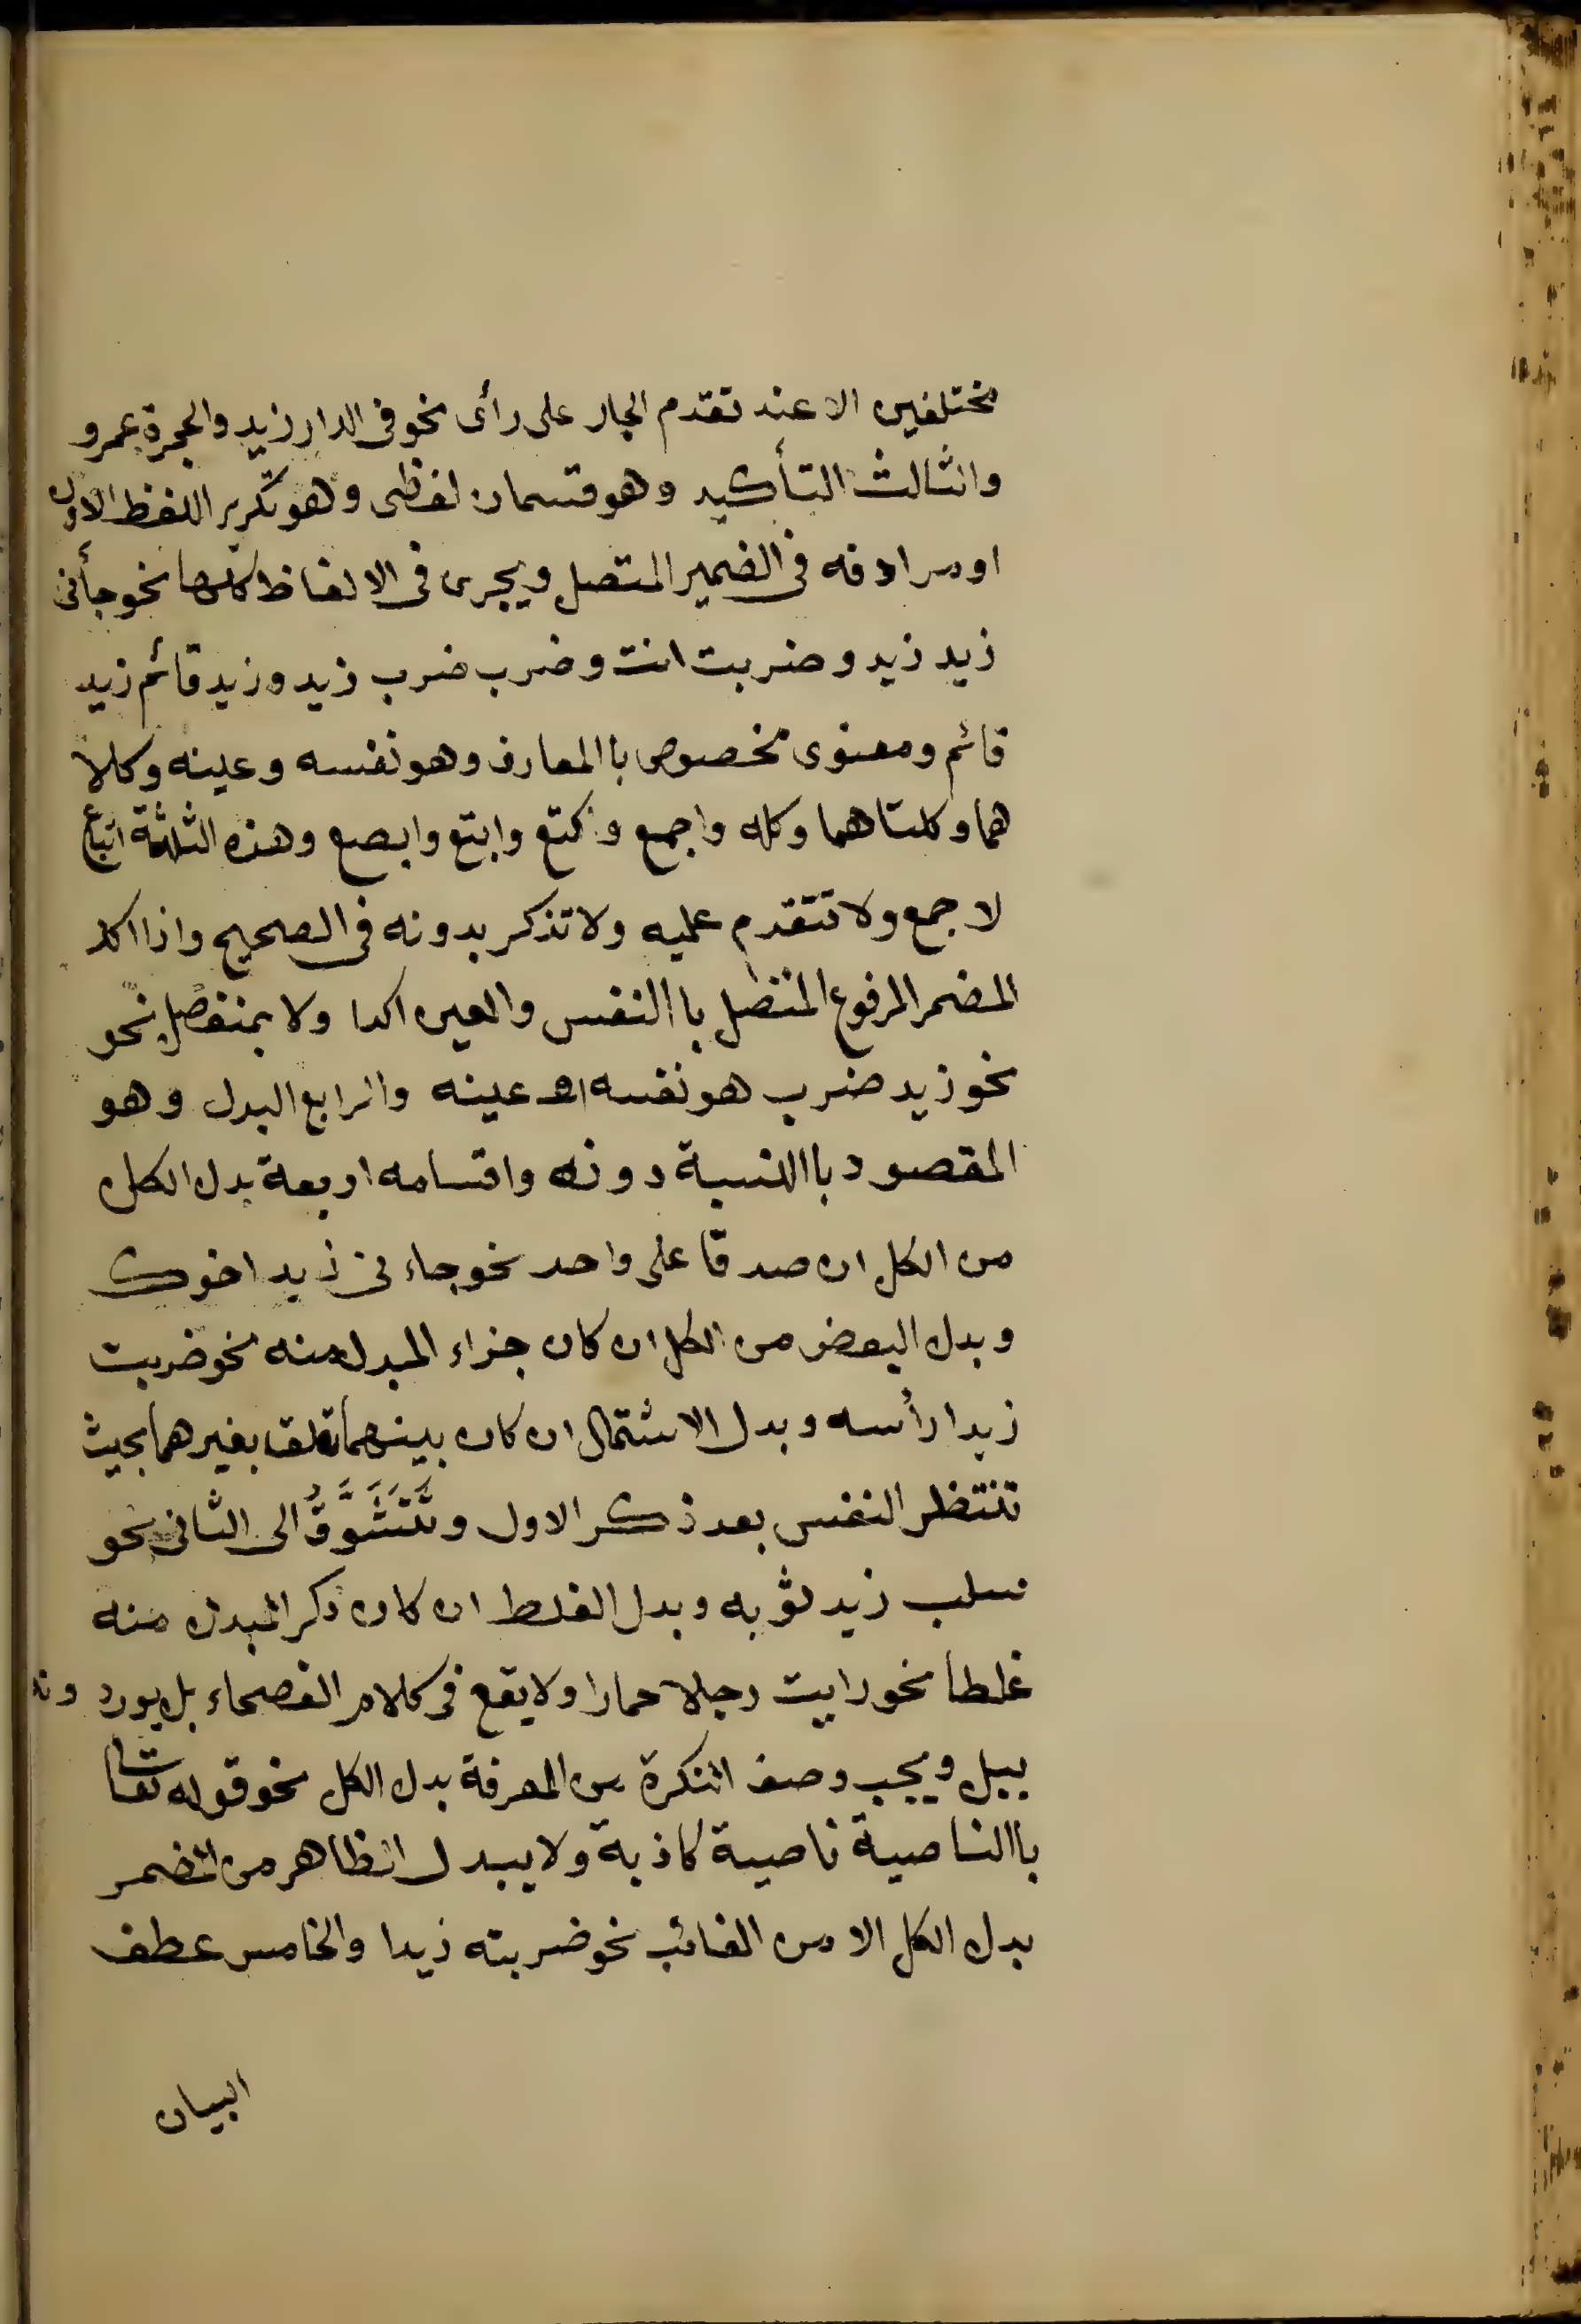 مختلفين الا عند تقدم الجار على رأى نحو فى الدار زيد والحجرة عمرو
والثالث التأكيد وهو قسمان لفظى وهو تكرير اللفظ الاول
او مرادفه فى الضمير المتصل ويجرى فى الالفاظ كلها نحو جأنى
زيد زيد وضربت انت وضرب ضرب زيد وزيد قائم زيد
قائم ومعنوى مخصوص باالمعارف وهو نفسه وعينه وكلا
هما وكلتاهما وكله واجمع واكتع وابتع وابصع وهذه الثلثة اتباع
لاجمع ولا تتقدم عليه ولا تذكر بدونه فى الصحيح واذا اكد
المضمر المرفوع المتصل باالنفس والعين اكد ا ولا بمنفصل نحو
نحو زيد ضرب هو نفسه او عينه والرابع البدل وهو
المقصود باالنسبة دونه واقسامه اربعة بدل الكل
من الكل ان صدقا على واحد نحو جاءنى زيد اخوك
وبدل البعض من الكل ان كان جزاء المبدل منه نحو ضربت
زيدا رأسه وبدل الاشتمال ان كان بينهما تعلق بغيرهما بحيث
تنتظر النفس بعد ذكر الاول وتَتَشَوَّقُ الى الثانى نحو
سلب زيد ثوبه وبدل الغلط ان كان ذكر المبدل منه
غلطا نحو رايت رجلا حمارا ولا يقع فى كلام الفصحاء بل يورد ونه
ببل ويجب وصف النكرة من المعرفة بدل الكل نحو قوله تعا
باالناصية ناصية كاذبة ولا يبدل الظاهر من المضمر
بدل الكل الا من الغائب نحو ضربته زيدا والخامس عطف
البيان